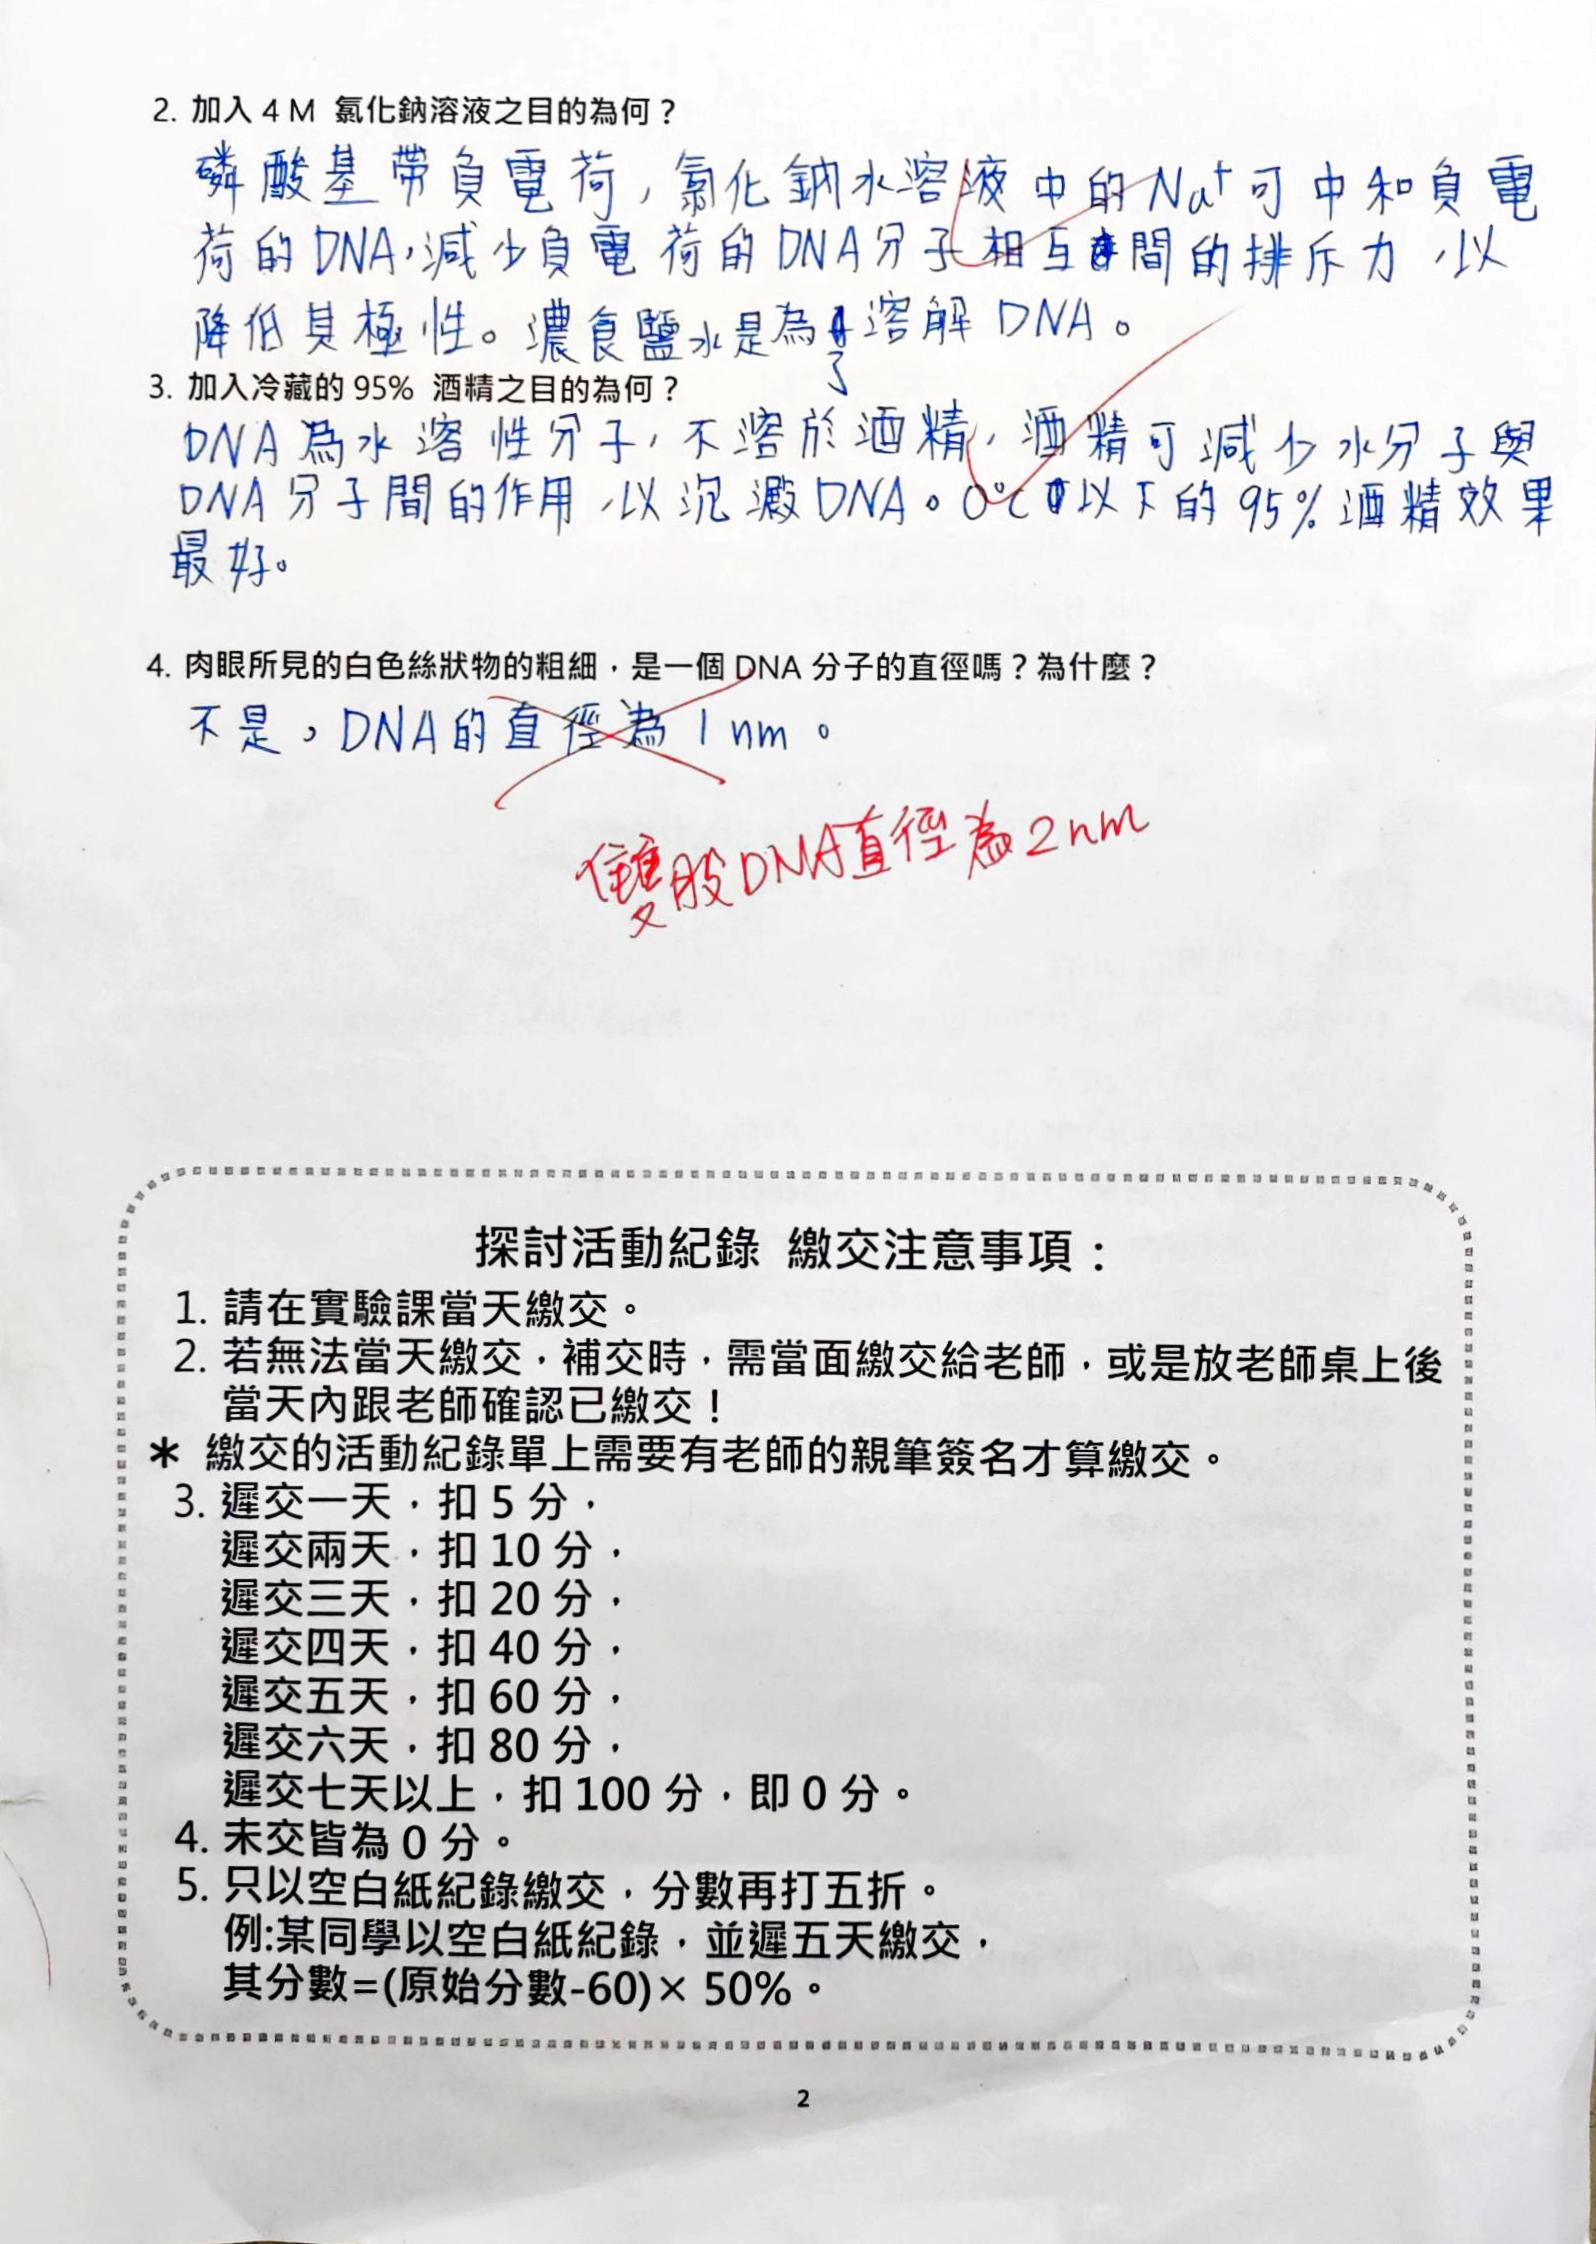 2. 加入 4 M 氯化鈉溶液之目的為何？
磷酸基帶負電荷，氯化鈉水溶液中的Na⁺可中和負電
荷的DNA，減少負電荷的DNA分子相互間的排斥力，以
降低其極性。濃食鹽水是為了溶解DNA。
3. 加入冷藏的 95% 酒精之目的為何？
DNA為水溶性分子，不溶於酒精，酒精可減少水分子與
DNA分子間的作用，以沉澱DNA。0℃以下的95%酒精效果
最好。
4. 肉眼所見的白色絲狀物的粗細，是一個 DNA 分子的直徑嗎？為什麼？
不是，DNA的直徑為1nm。
雙股DNA直徑為2nm
探討活動紀錄 繳交注意事項：
1. 請在實驗課當天繳交。
2. 若無法當天繳交，補交時，需當面繳交給老師，或是放老師桌上後
當天內跟老師確認已繳交！
＊ 繳交的活動紀錄單上需要有老師的親筆簽名才算繳交。
3. 遲交一天，扣 5 分，
遲交兩天，扣 10 分，
遲交三天，扣 20 分，
遲交四天，扣 40 分，
遲交五天，扣 60 分，
遲交六天，扣 80 分，
遲交七天以上，扣 100 分，即 0 分。
4. 未交皆為 0 分。
5. 只以空白紙紀錄繳交，分數再打五折。
例:某同學以空白紙紀錄，並遲五天繳交，
其分數=(原始分數-60)× 50%。
2